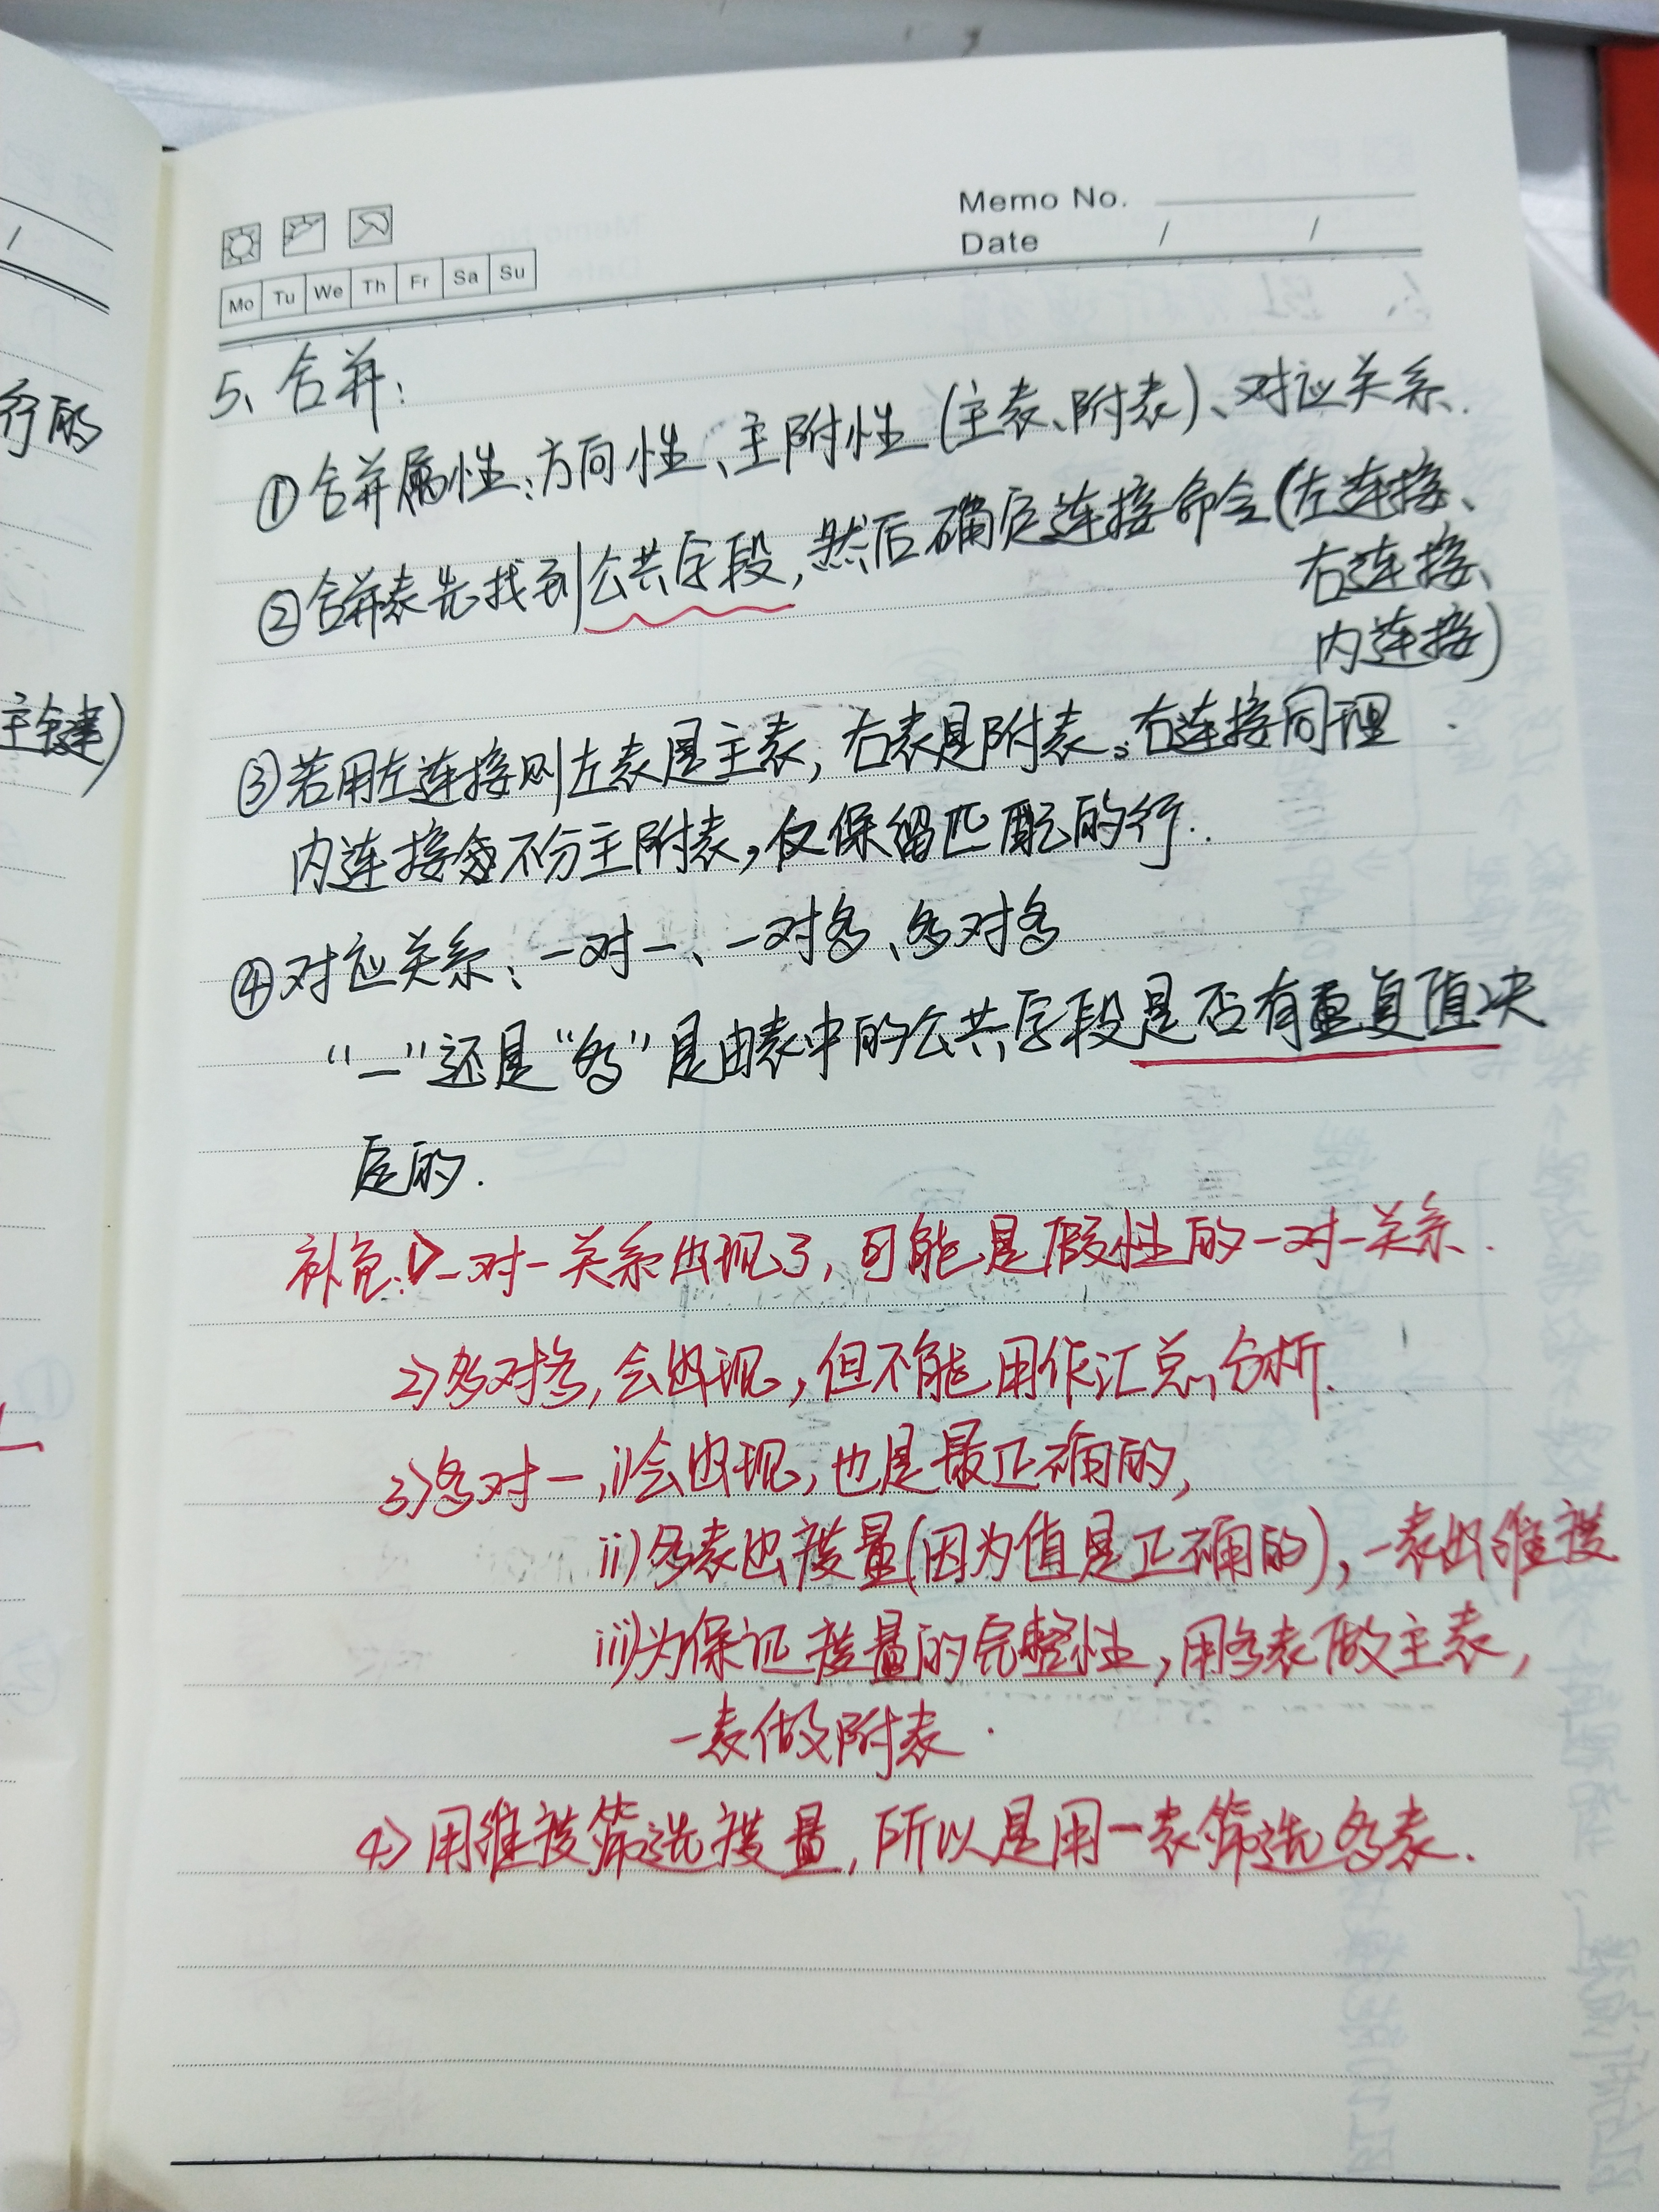 Memo No.
Date / /
Mo Tu We Th Fr Sa Su
行的
主键)
5、合并:
①合并属性:方向性、主附性(主表、附表)、对应关系.
②合并表先找到公共字段,然后确定连接命令(左连接、
右连接、
内连接)
③若用左连接则左表是主表,右表是附表。右连接同理
内连接不分主附表,仅保留匹配的行.
④对应关系:一对一、一对多、多对多
“一”还是“多”是由表中的公共字段是否有重复值决
定的.
补充:1>一对一关系出现了,可能是假性的一对一关系.
2>多对多,会出现,但不能用作汇总分析.
3>多对一,i)会出现,也是最正确的,
ii)多表出度量(因为值是正确的),一表出维度
iii)为保证度量的完整性,用多表做主表,
一表做附表.
4>用维度筛选度量,所以是用一表筛选多表.